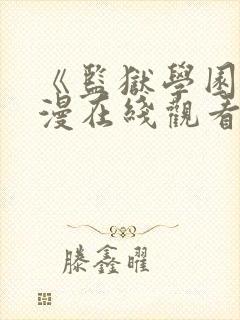 《監獄學園
漫在綫觀看
滕鑫曜